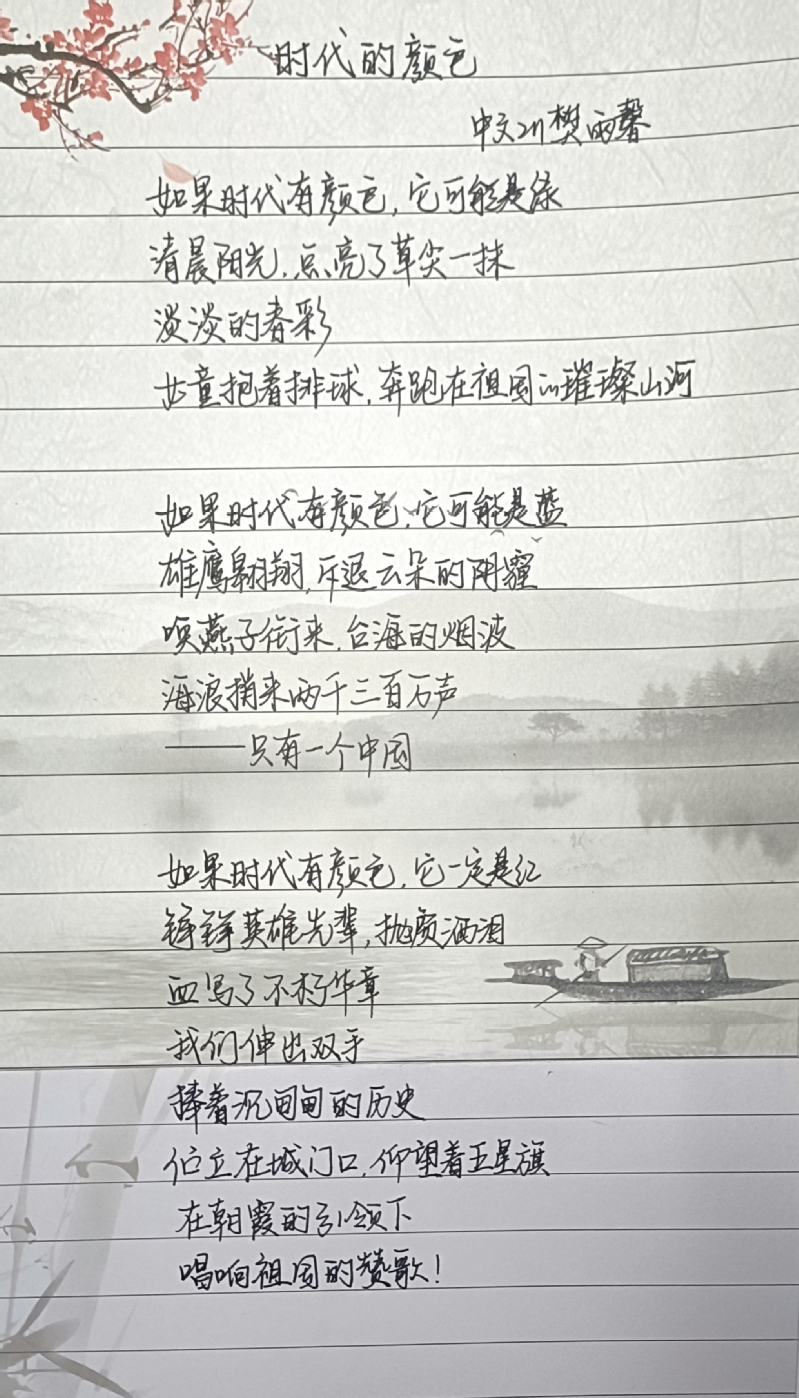 时代的颜色
中文211樊雨馨
如果时代有颜色,它可能是绿
清晨阳光,点亮了草尖一抹
淡淡的春彩
女童抱着排球,奔跑在祖国的璀璨山河
如果时代有颜色,它可能是蓝
雄鹰翱翔,斥退云朵的阴霾
唤燕子衔来,台海的烟波
海浪捎来两千三百万声
——只有一个中国
如果时代有颜色,它一定是红
铮铮英雄先辈,抛颅洒泪
血写了不朽华章
我们伸出双手
捧着沉甸甸的历史
伫立在城门口,仰望着五星旗
在朝霞的引领下
唱响祖国的赞歌!